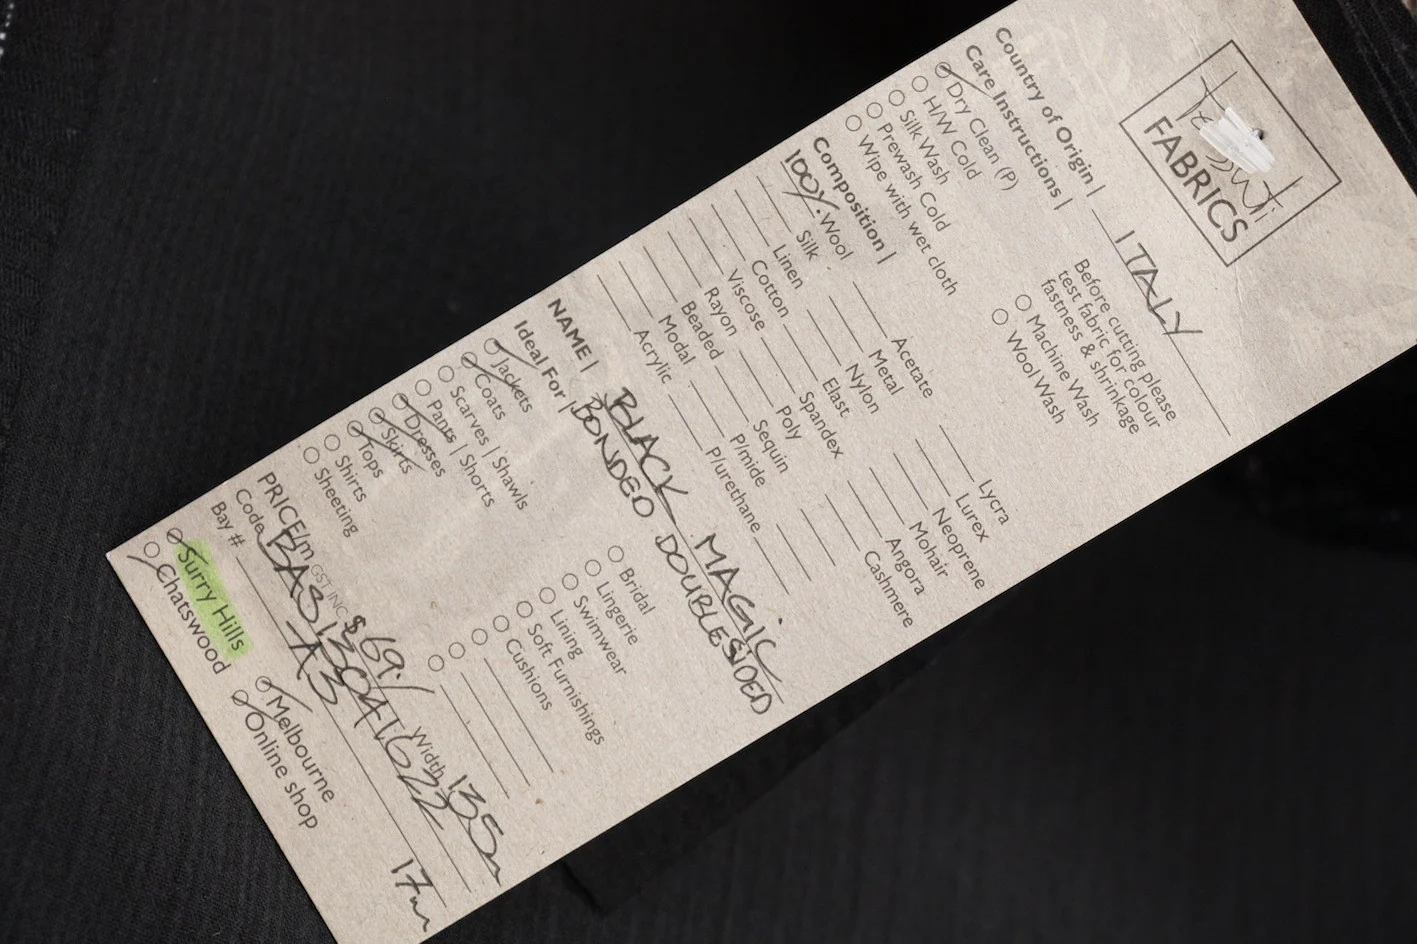 FABRICS
Country of Origin | ITALY
Care Instructions |
Dry Clean (P)
H/W Cold
Silk Wash
Prewash Cold
Wipe with wet cloth
Before cutting please
test fabric for colour
fastness & shrinkage
Machine Wash
Wool Wash
Composition |
100% Wool
Silk
Linen
Cotton
Viscose
Rayon
Beaded
Modal
Acrylic
Acetate
Metal
Nylon
Elast.
Spandex
Poly
Sequin
P/mide
P/urethane
Lycra
Lurex
Neoprene
Mohair
Angora
Cashmere
NAME | BLACK MAGIC
BONDED DOUBLESIDED
Ideal For |
Jackets
Coats
Scarves | Shawls
Pants | Shorts
Dresses
Skirts
Tops
Shirts
Sheeting
Bridal
Lingerie
Swimwear
Lining
Soft Furnishings
Cushions
PRICE/m GST INC $69./ Width 135m
Code BAS13041622
Bay # A3 17m
Surry Hills
Chatswood
Melbourne
Online shop